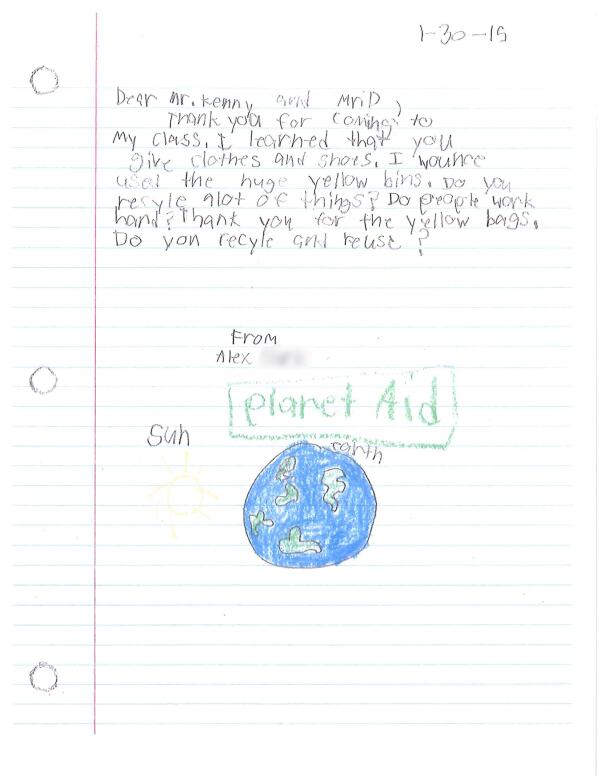 1-30-15
Dear Mr. Kenny and Mr.D,
Thank you for coming to
My class. I learned that you
give clothes and shoes. I wounce
used the huge yellow bins. Do you
recyle alot of things? Do people work
hand? Thank you for the yellow bags.
Do you recyle and reuse?
From
Alex
Planet Aid
Sun
earth